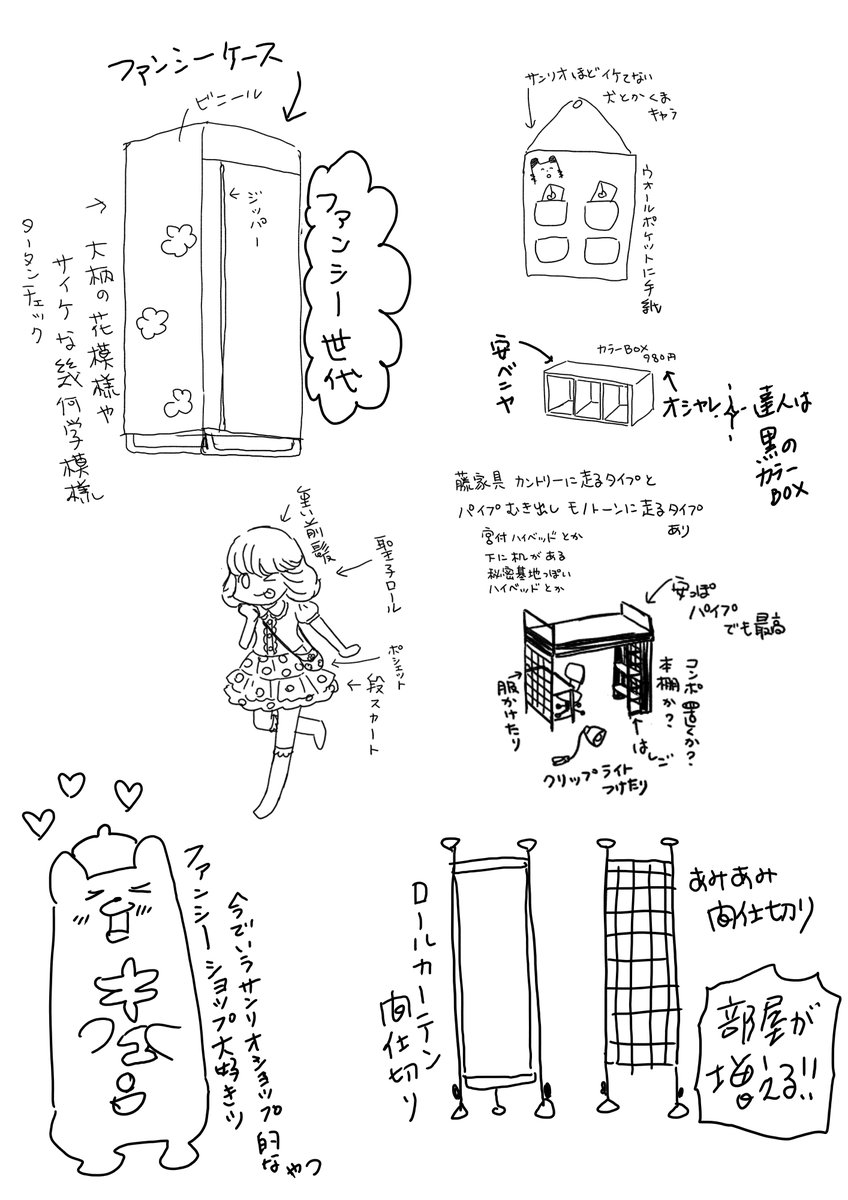 ファンシーケース
ビニール
ジッパー
→ 大柄の花模様や
サイケな幾何学模様
タータンチェック
ファンシー世代
サンリオほどイケてない
犬とかくま
キャラ
ウォールポケットに手紙
安ベニヤ
カラーBOX
980円
オシャレ
達人は
黒の
カラー
BOX
藤家具 カントリーに走るタイプと
パイプむき出し モノトーンに走るタイプ
あり
宮付ハイベッドとか
下に机がある
秘密基地っぽい
ハイベッドとか
重い前髪
聖子ロール
ポシェット
段スカート
安っぽ
パイプ
でも最高
服かけたり
コンポ置くか?
本棚か?
はしご
クリップライト
つけたり
ファンシーショップ大好きッ
今でいうサンリオショップ的な
やつ
ロールカーテン
間仕切り
あみあみ
間仕切り
部屋が
増える!!